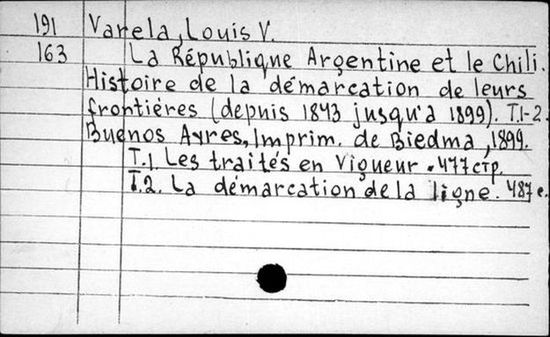 191 Varela, Louis V.
163 La République Argentine et le Chili.
Histoire de la démarcation de leurs
frontières (depuis 1843 jusqu'a 1899). T.1-2.
Buenos Ayres, Imprim. de Biedma, 1899.
T.1. Les traités en vigueur. 477 стр.
T.2. La démarcation de la ligne. 487 с.